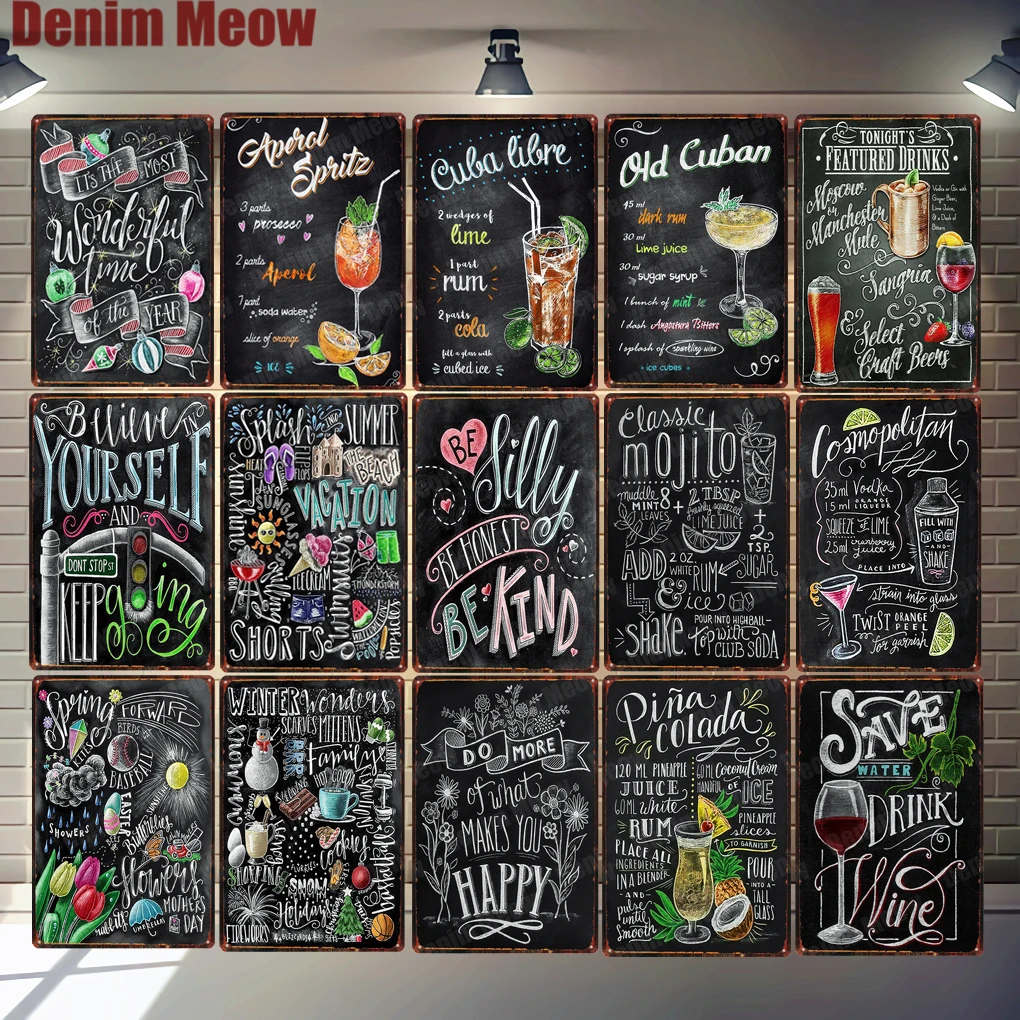 Denim Meow
IT'S THE MOST
Wonderful
time
of the YEAR
Aperol
Spritz
3 parts
prosecco
2 parts
Aperol
1 part
soda water
slice of orange
ICE
Cuba libre
2 wedges of
lime
1 part
rum
2 parts
cola
fill a glass with
cubed ice
Old Cuban
45 ml
dark rum
30 ml
Lime juice
30 ml
sugar syrup
1 bunch of mint
1 dash Angostura Bitters
1 splash of sparkling wine
ice cubes
TONIGHT'S
FEATURED DRINKS
Moscow
or
Manchester
Mule
Vodka or Gin with
Ginger Beer,
Lime Juice,
& a Dash of
Bitters
Sangria
& Select
Craft Beers
Believe IN
YOURSELF
AND
DONT STOP ST
KEEP going
Splash INTO SUMMER
HEAT
FLIP FLOPS
THE BEACH
Sunshine
VACATION
ICE CREAM
BBQ
THUNDERSTORM
Swimsuits
WATERMELON
SHORTS
POOL
Popsicles
BE
Silly
BE HONEST
BE KIND
Classic
mojito
muddle 8
MINT LEAVES
+
2 TBSP
freshly squeezed
LIME JUICE
+
2
TSP.
SUGAR
ADD 2 OZ.
WHITE RUM
& ice
SHAKE
POUR INTO HIGHBALL
top with
CLUB SODA
Cosmopolitan
35ml Vodka
15ml ORANGE LIQUEUR
SQUEEZE OF LIME
25ml cranberry juice
PLACE INTO
FILL WITH
ICE
AND
SHAKE
strain into glass
TWIST ORANGE
PEEL
for garnish
Spring FORWARD
KITES
BIRDS
BASEBALL
SUNSHINE
SHOWERS
EASTER
Butterflies
flowers
tulips
UMBRELLA
MOTHERS
DAY
WINTER Wonders
SCARVES MITTENS
snowman
BRRR
family
SLEDDING
HOT COCOA
cookies
SHOPPING
SNOW
Holidays
basketball
FIREWORKS
DO MORE
of what
MAKES YOU
HAPPY
Piña
Colada
120 ML PINEAPPLE
JUICE
60 ML White
RUM
PLACE ALL
INGREDIENTS
IN A BLENDER
AND
pulse
until
smooth
60 ML Coconut Cream
HANDFUL OF ICE
PINEAPPLE
slices
TO GARNISH
POUR
INTO A
TALL
GLASS
SAVE
WATER
DRINK
Wine